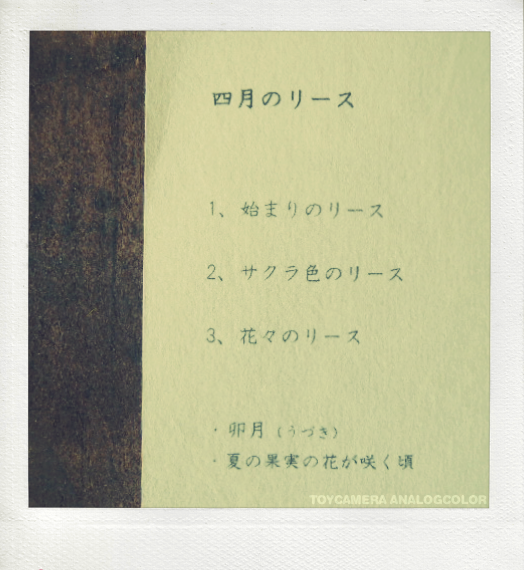 四月のリース
1、始まりのリース
2、サクラ色のリース
3、花々のリース
・卯月（うづき）
・夏の果実の花が咲く頃
TOYCAMERA ANALOGCOLOR